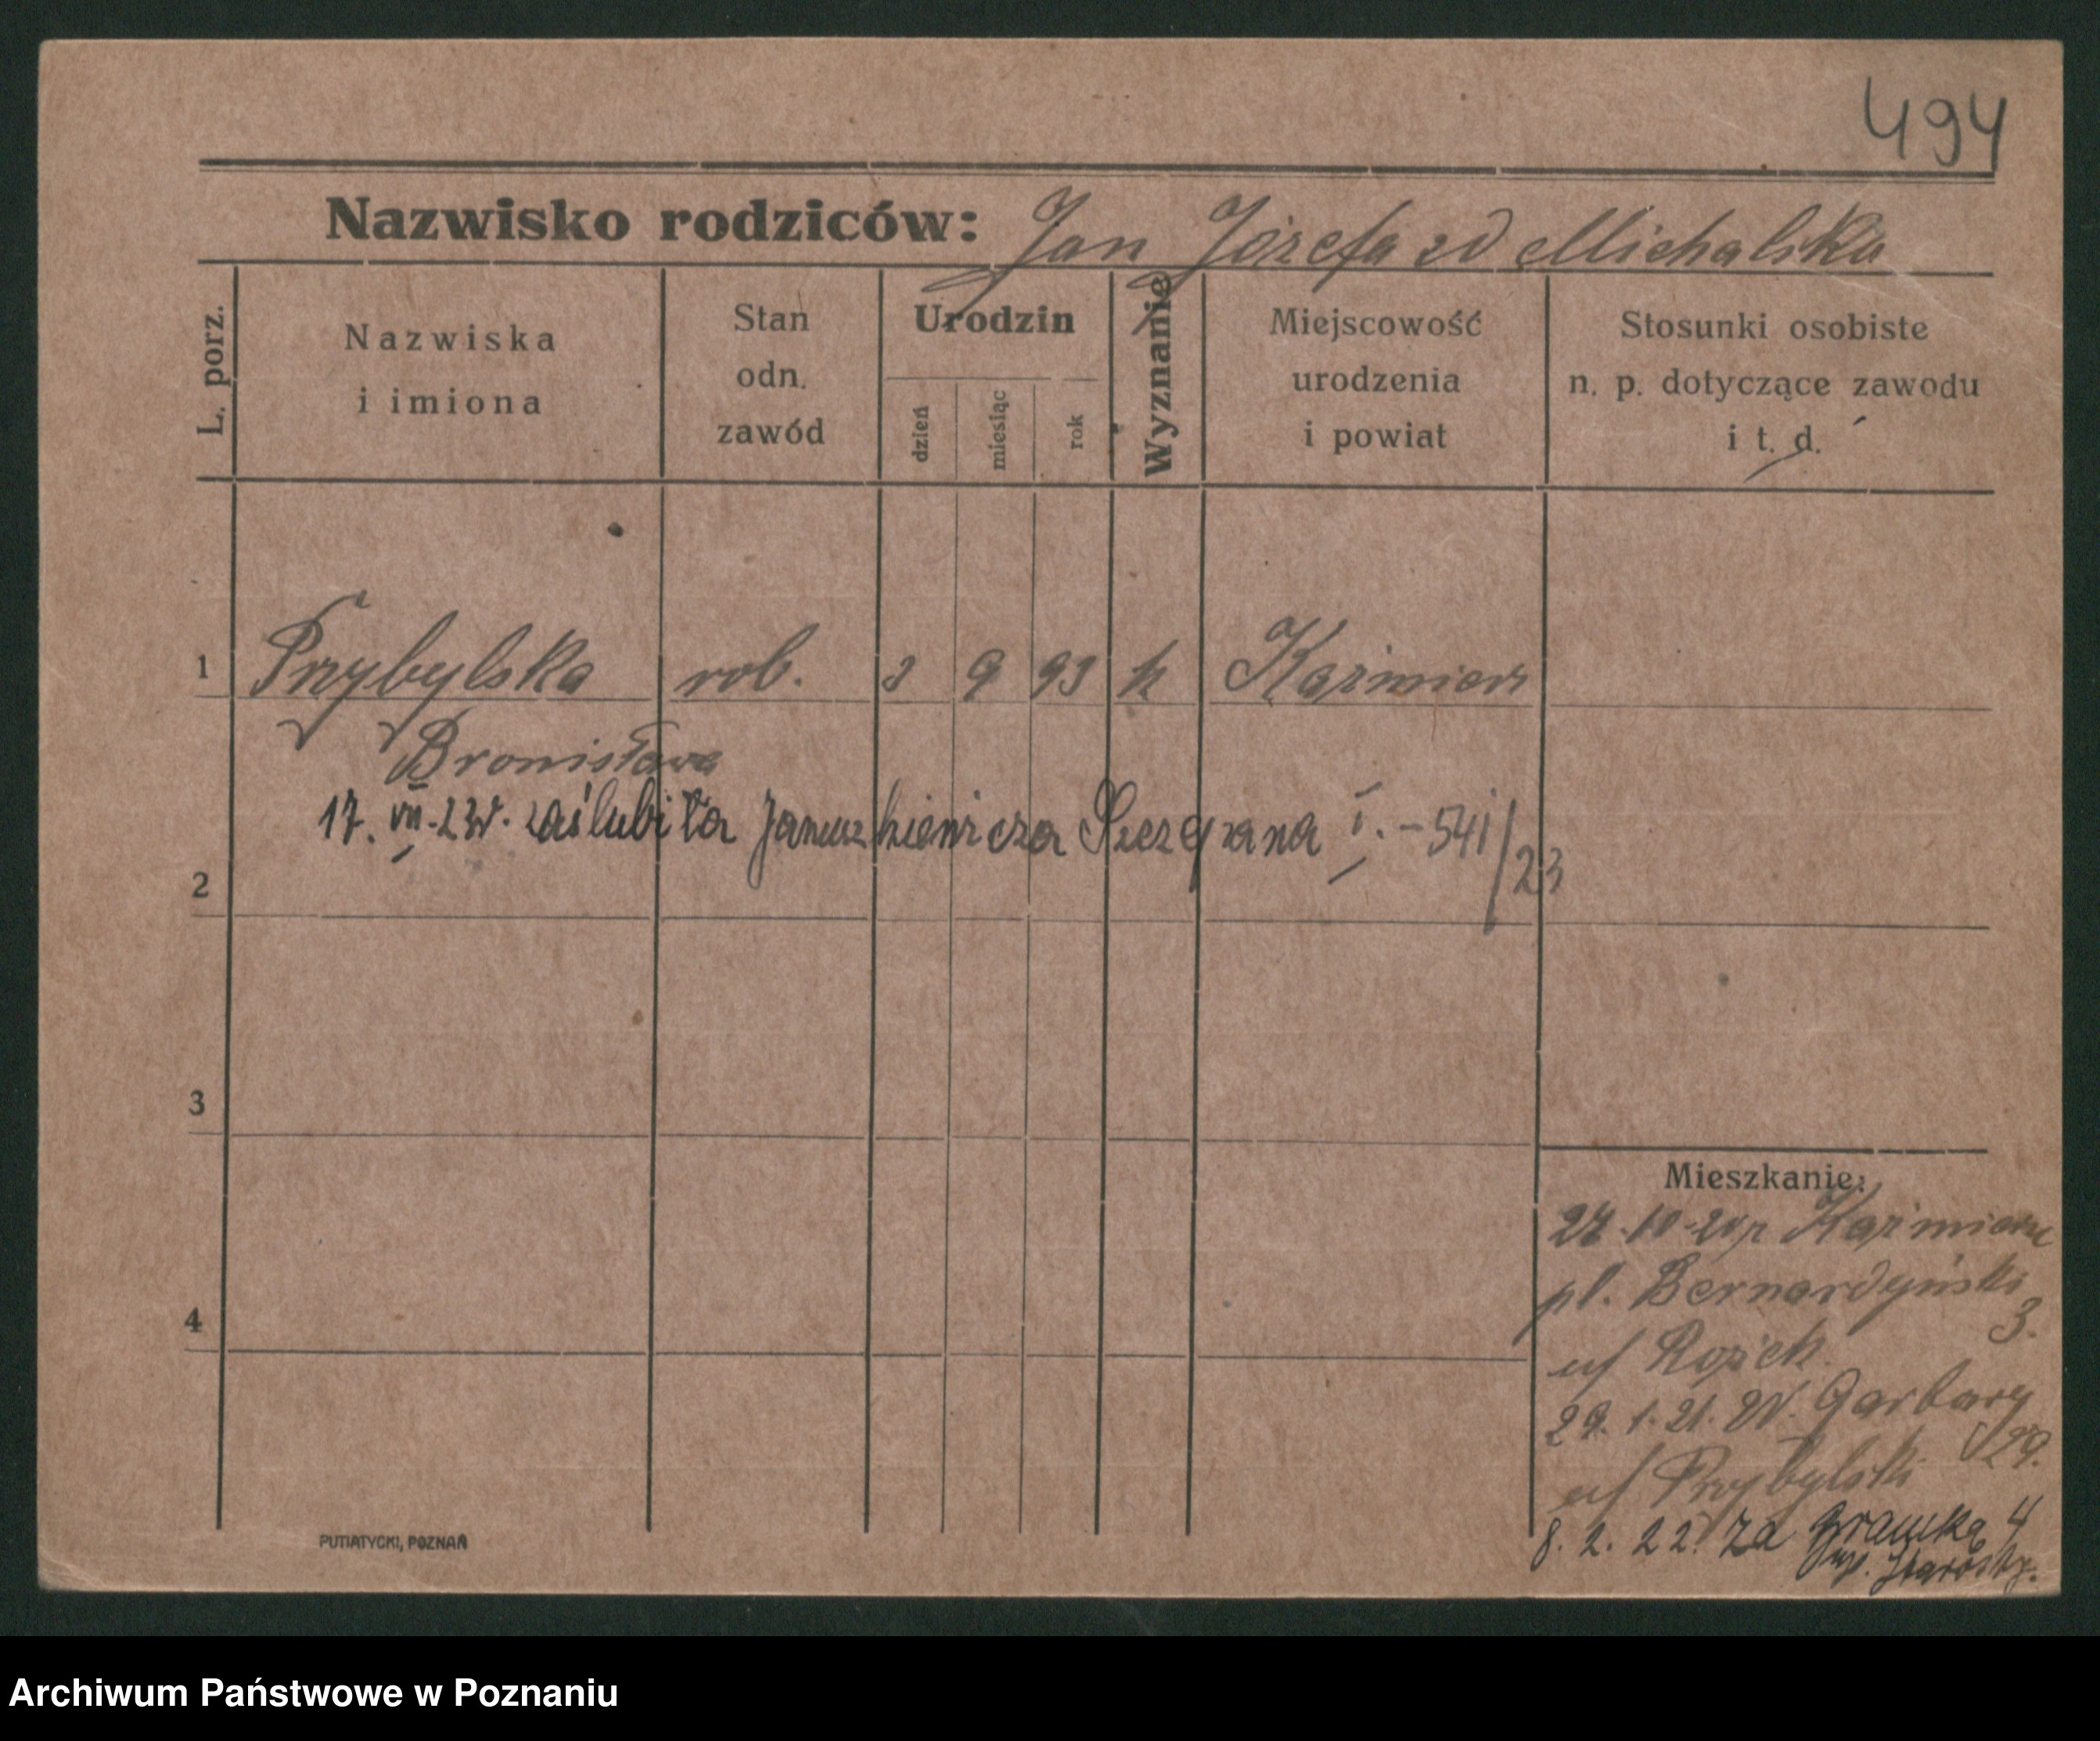 494
Nazwisko rodziców: Jan Józefa zd Michalska
L. porz.
Nazwiska
i imiona
Stan
odn.
zawód
Urodzin
dzień
miesiąc
rok
Wyznanie
Miejscowość
urodzenia
i powiat
Stosunki osobiste
n. p. dotyczące zawodu
i t. d.
1 Przybylska rob. 3 9 93 k Kaźmierz
Bronisława
17. VII. 23r. zaślubiła Januszkiewicza Szczepana I. - 541/23
2
3
4
Mieszkanie:
Kaźmierz
pl. Bernardyński
3.
u/ Rożek
29. 1. 21. W. Garbary
29.
u/ Przybylski
8. 2. 22. Za Bramką 4
PUTIATYCKI, POZNAŃ
Archiwum Państwowe w Poznaniu